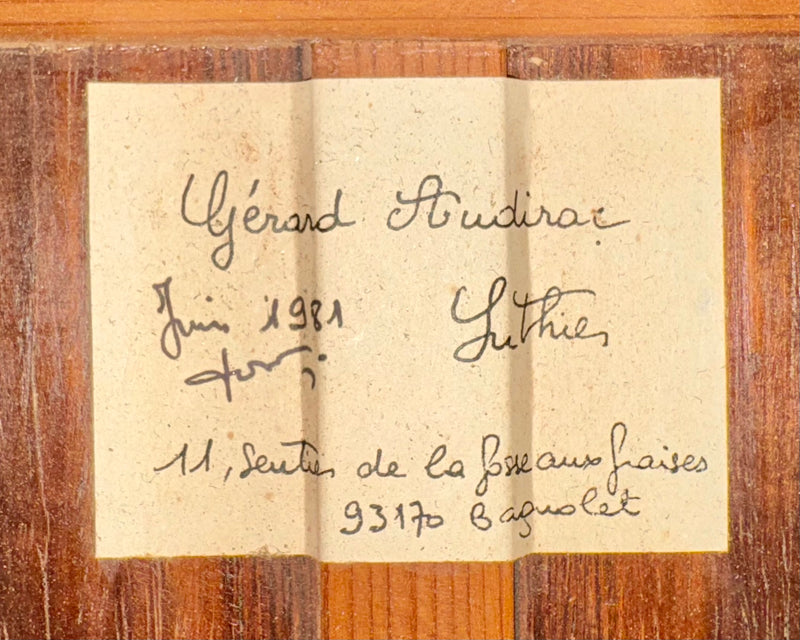 Gérard Audirac
Juin 1981 Luthier
11, Sentier de la fosse aux fraises
93170 Bagnolet